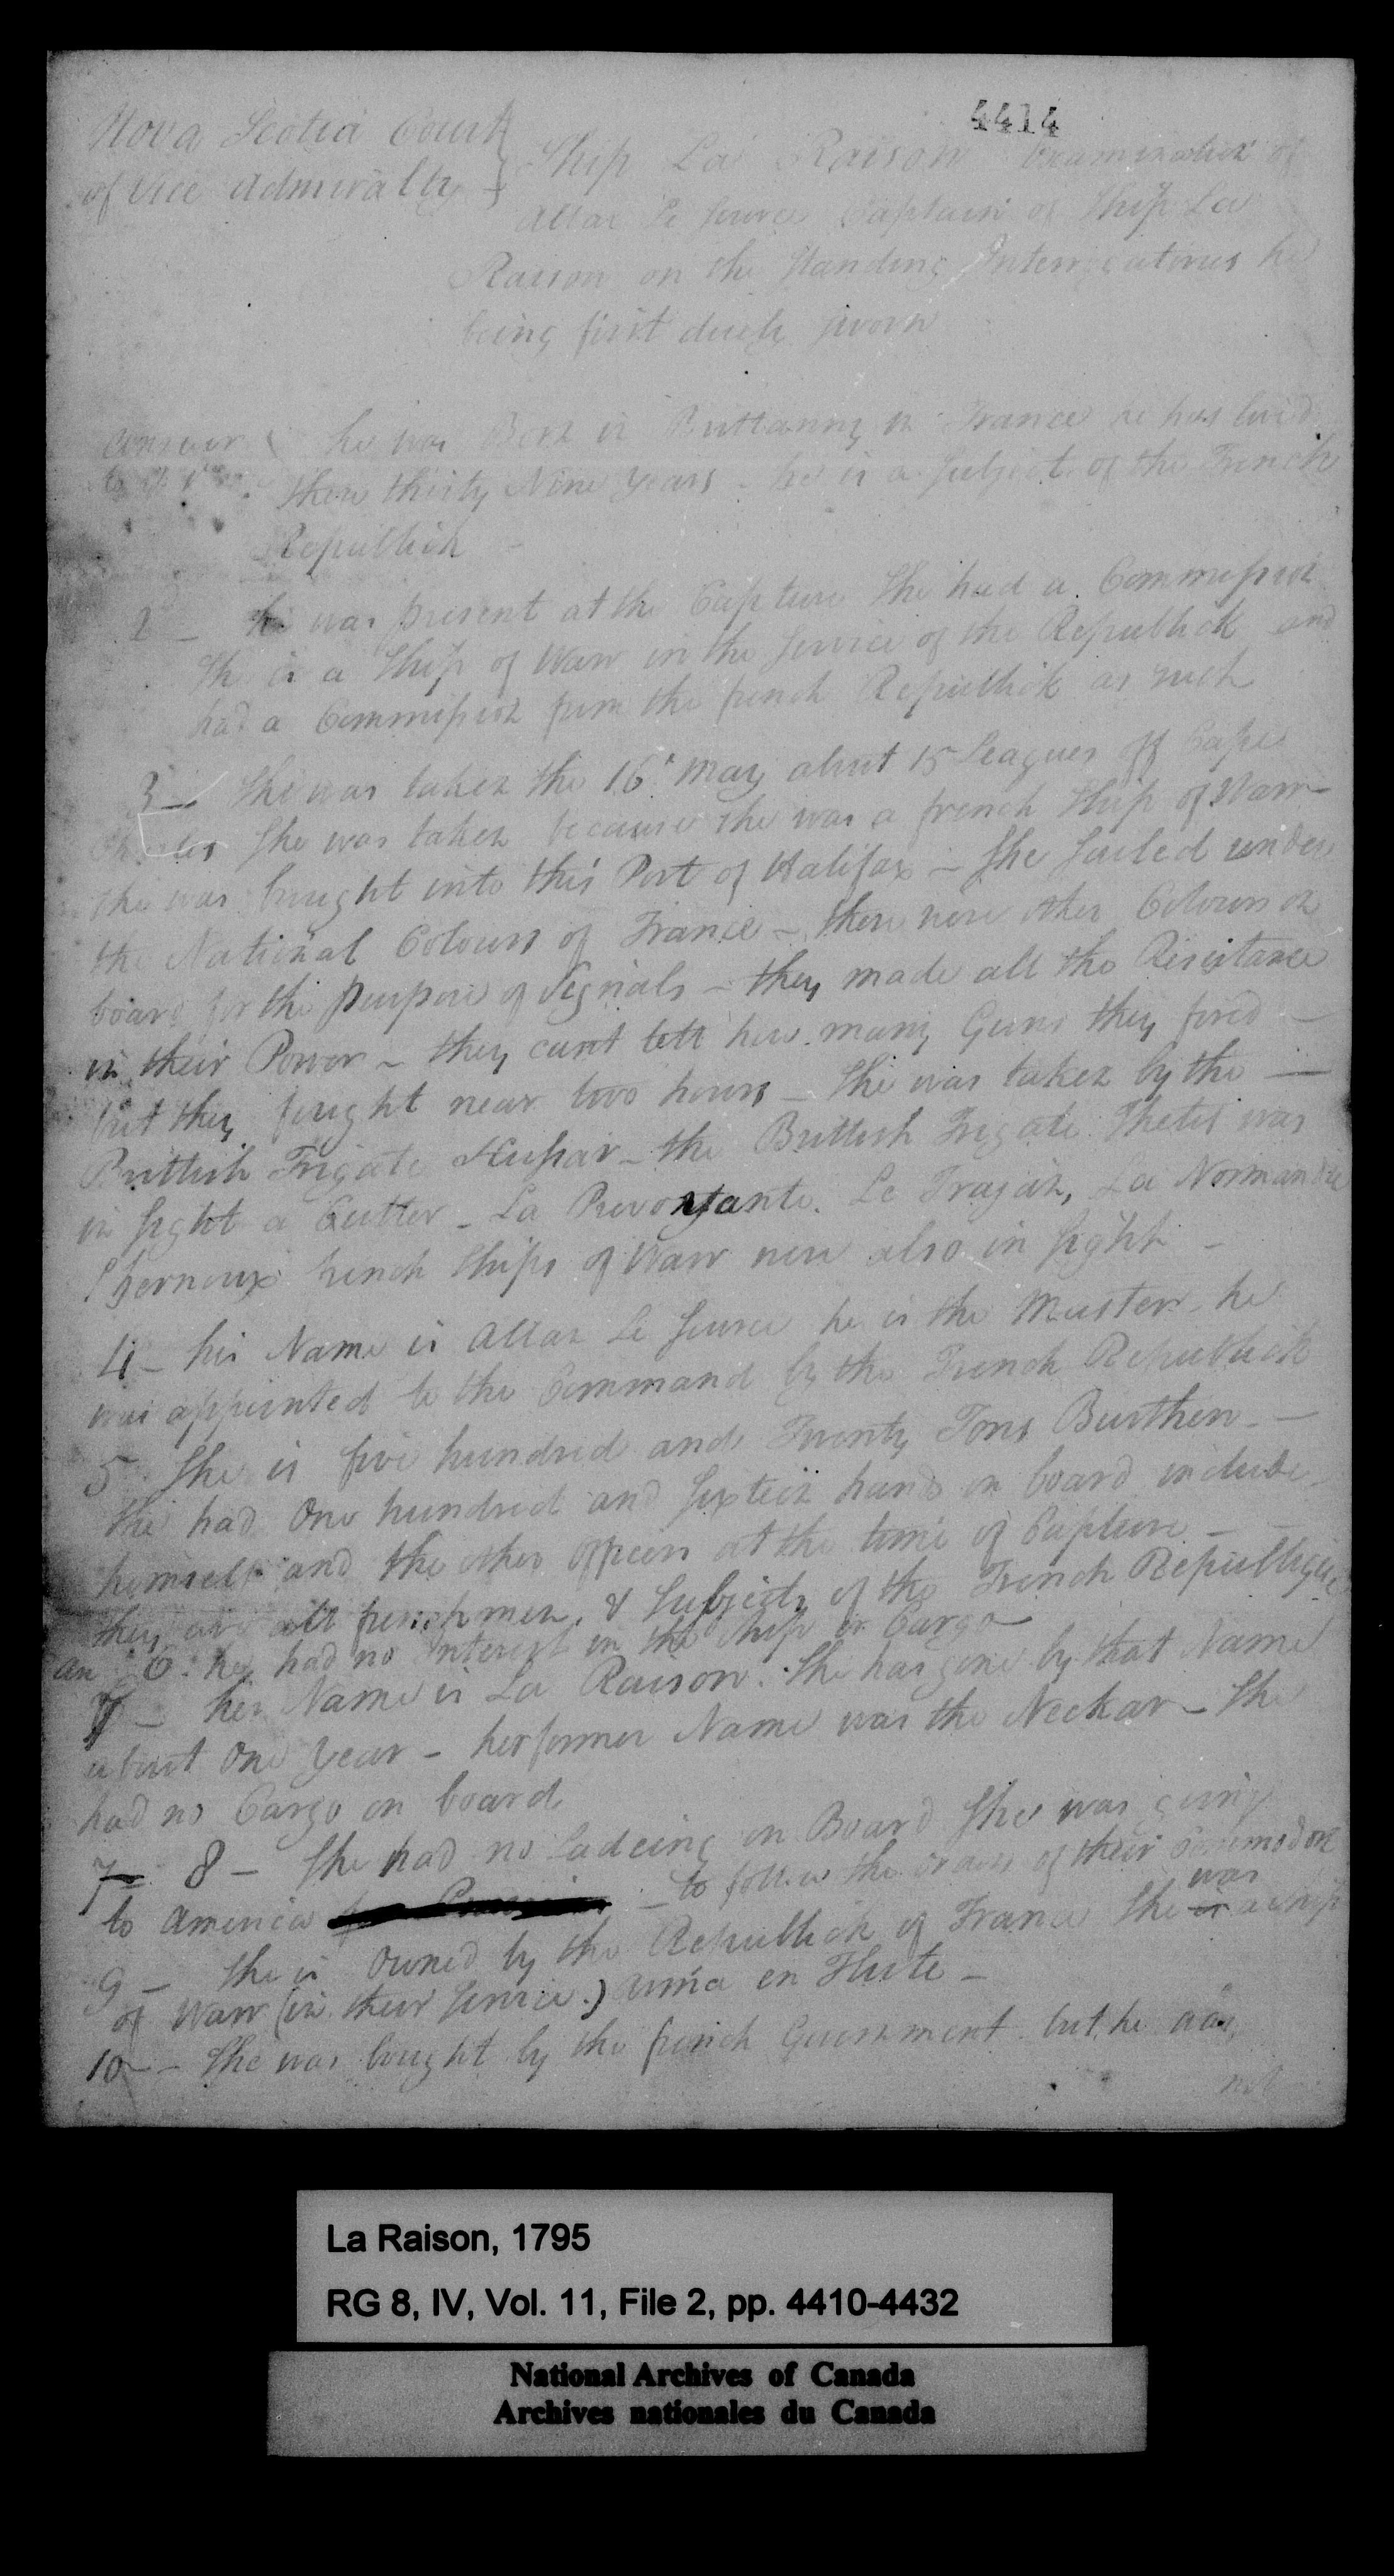 4414
Nova Scotia Court
of Vice Admiralty
Ship La Raison Examination of
Allan Le Source Captain of Ship La
Raison on the Standing Interrogatories he
being first duely sworn
answer he was Born in Brittanny in France he has lived
there thirty Nine years - he is a Subject of the French
Republick -
2 - he was present at the Capture She had a Commission
She is a Ship of Warr in the Service of the Republick and
had a Commission from the french Republick as such
3 - She was taken the 16 May about 15 Leagues off Cape
She was taken because she was a french Ship of Warr
She was brought into this Port of Halifax - She sailed under
the National Colours of France - there were other Colours on
board for the purpose of Signals - they made all the Resistance
in their Power - they cant tell how many Guns they fired -
but they fought near two hours - She was taken by the -
Brittish Frigate Hussar - the Brittish Frigate Thetis was
in sight a Cutter - La Prevoyante. Le Trajan, La Normandie
french Ships of Warr were also in sight -
4 - his Name is Allan Le Source he is the Master he
was appointed to the Command by the French Republick
5 She is five hundred and Twenty Tons Burthen -
She had One hundred and Sixteen hands on board include
himself and the other officers at the time of Capture -
they are all frenchmen, & Subjects of the French Republique
an 6. he had no Interest in the Ship or Cargo
7 - her Name is La Raison. She has gone by that Name
about One year - her former Name was the Neckar - She
had no Cargo on board
7 8 - She had no Ladeing on Board She was going
to America - to follow the orders of their Commodore
9 - She is Owned by the Republick of France She is was a Ship
of Warr (in their Service.) Armá en Flute -
10 - She was bought by the french Government but he was
not
La Raison, 1795
RG 8, IV, Vol. 11, File 2, pp. 4410-4432
National Archives of Canada
Archives nationales du Canada